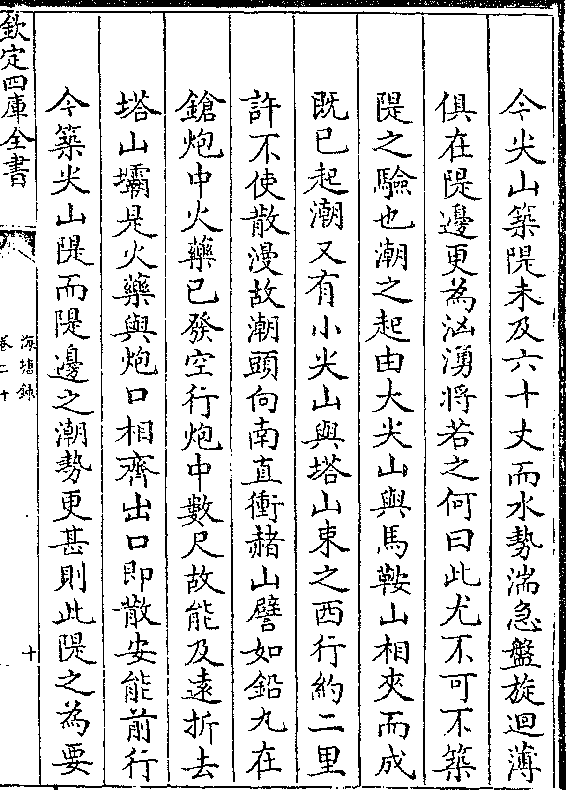 今尖山築隄未及六十丈而水勢湍急盤旋迴薄
俱在隄邊更為洶湧將若之何曰此尤不可不築
隄之驗也潮之起由大尖山與馬鞍山相夾而成
既已起潮又有小尖山與塔山束之西行約二里
許不使散漫故潮頭向南直衝赭山譬如鉛丸在
鎗炮中火藥已發空行炮中數尺故能及遠折去
塔山壩是火藥與炮口相齊出口即散安能前行
今築尖山隄而隄邊之潮勢更甚則此隄之為要
欽定四庫全書
海塘錄
卷二十
十